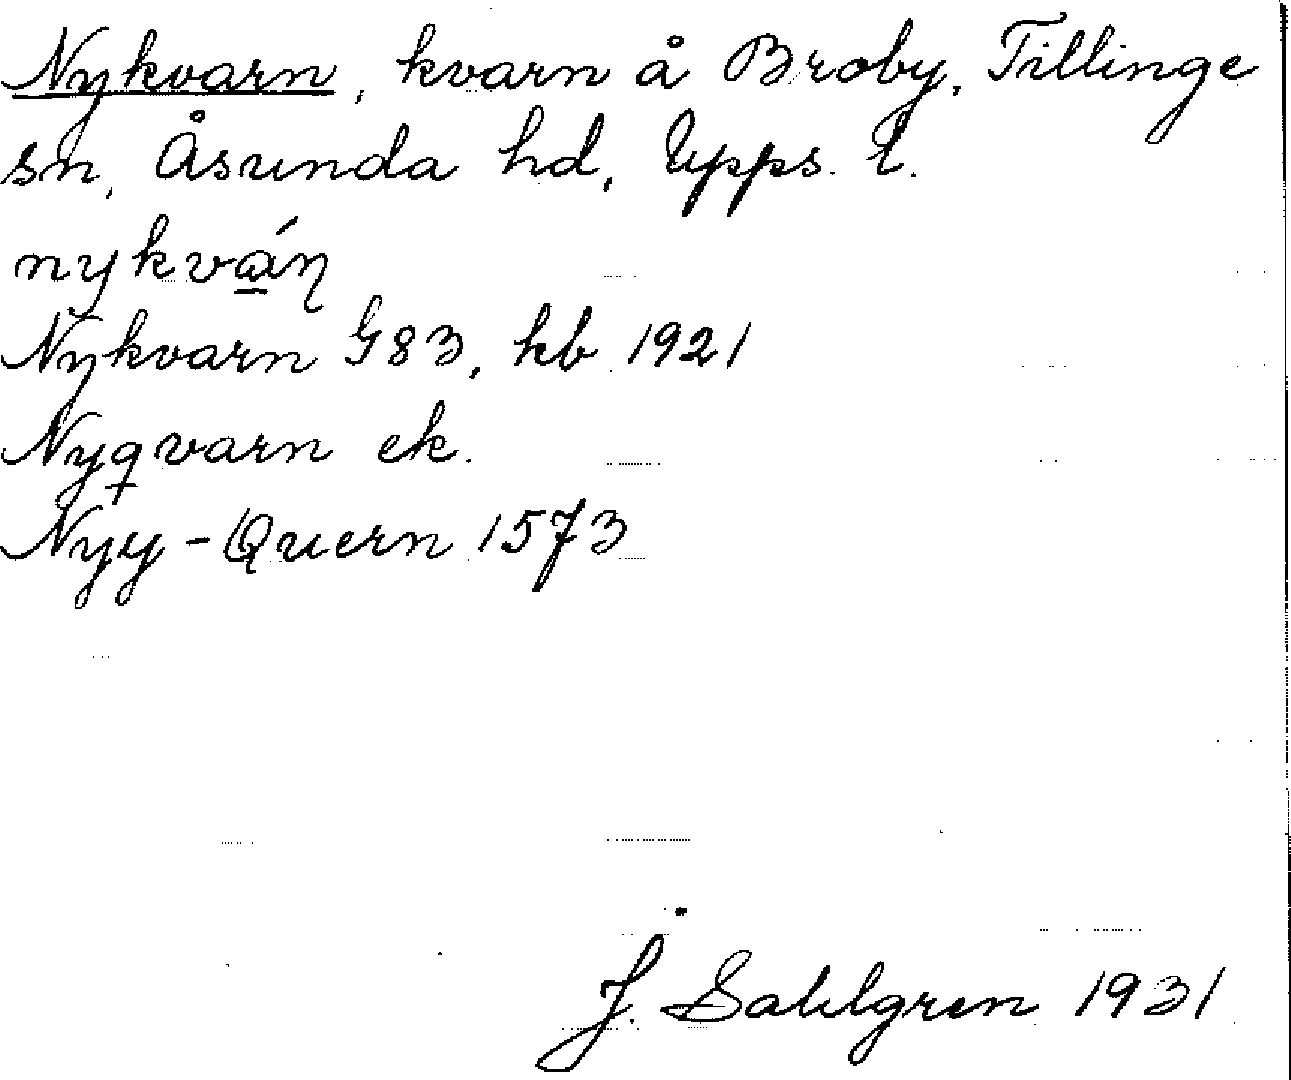 Nykvarn, kvarn å Broby, Tillinge
sn, Åsunda hd, Upps. l.
nykvá̲ŋ
Nykvarn G83, kb 1921
Nyqvarn ek.
Nyy-Quern 1573
J. Sahlgren 1931